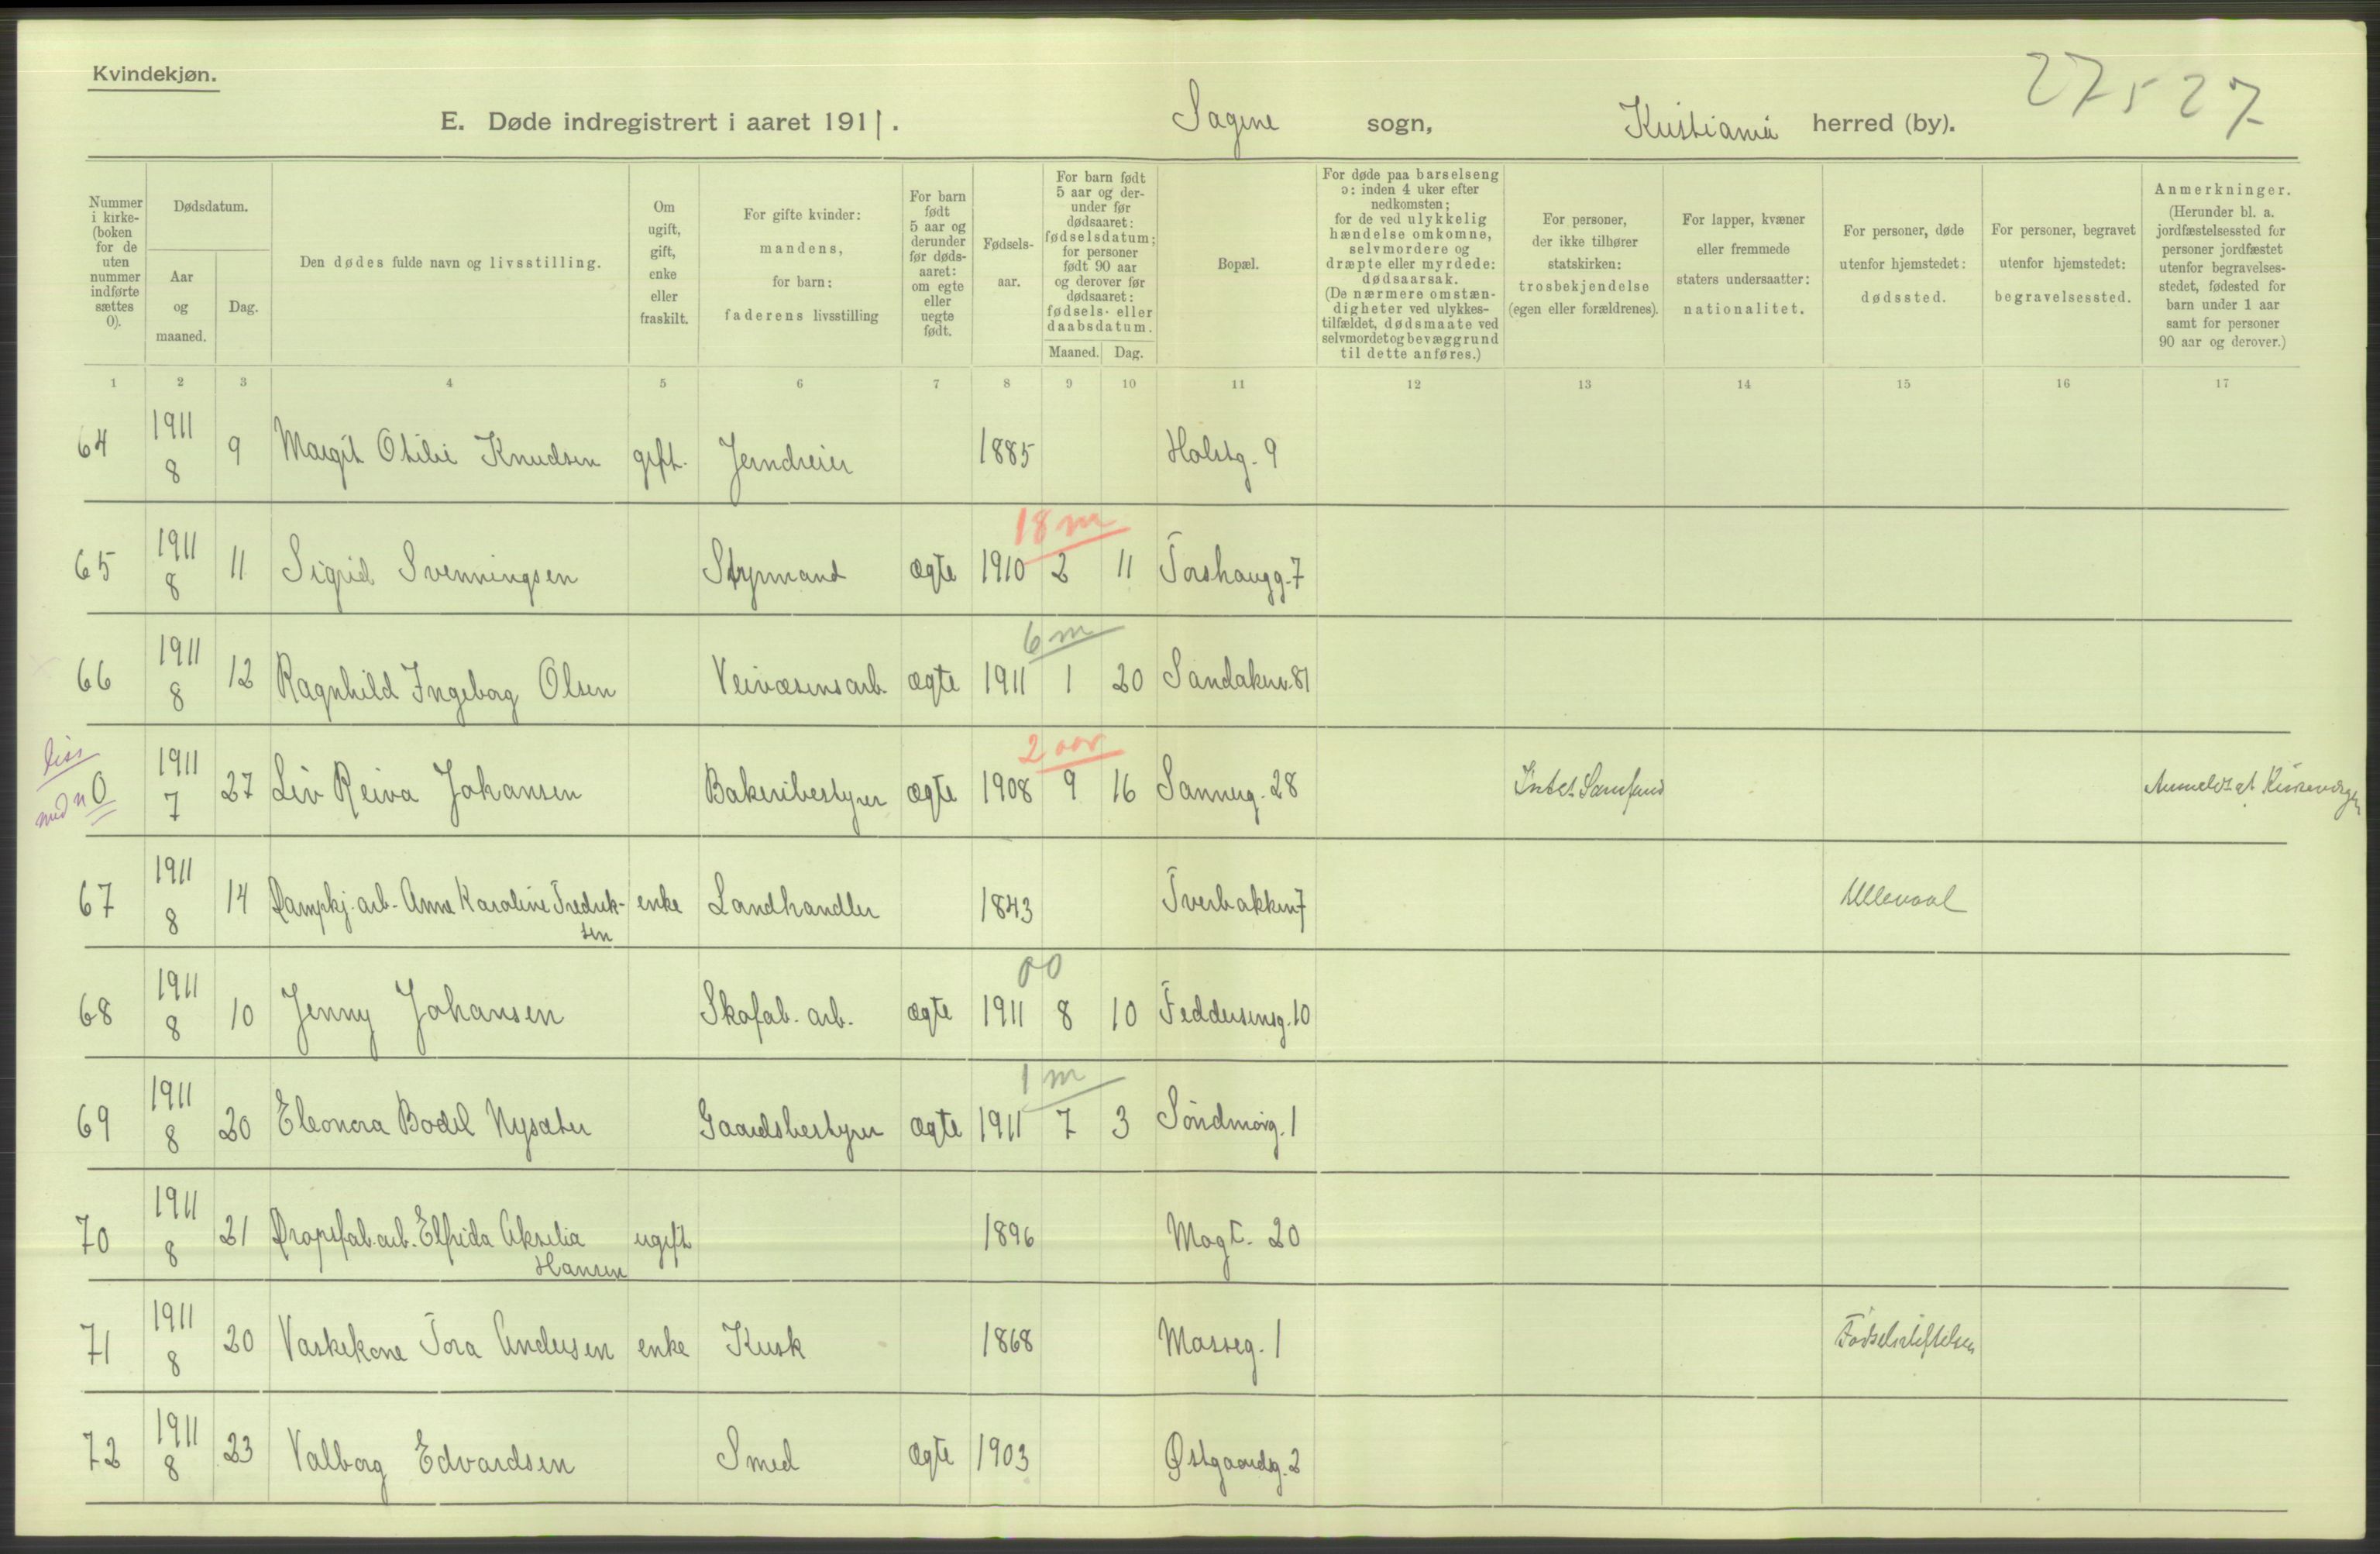 Kvindekjøn.
E. Døde indregistrert i aaret 1911. Sagene sogn, Kristiania herred (by).
27 5 27
Nummer i kirke- (boken for de uten nummer indførte sættes 0).
Dødsdatum.
Aar og maaned.
Dag.
Den dødes fulde navn og livsstilling.
Om ugift, gift, enke eller fraskilt.
For gifte kvinder: mandens, for barn: faderens livsstilling
For barn født 5 aar og derunder før døds- aaret: om egte eller uegte født.
Fødsels- aar.
For barn født 5 aar og der- under før dødsaaret: fødselsdatum; for personer født 90 aar og derover før dødsaaret: fødsels- eller daabsdatum.
Maaned. Dag.
Bopæl.
For døde paa barselseng ɔ: inden 4 uker efter nedkomsten; for de ved ulykkelig hændelse omkomne, selvmordere og dræpte eller myrdede: dødsaarsak. (De nærmere omstæn- digheter ved ulykkes- tilfældet, dødsmaate ved selvmordet og bevæggrund til dette anføres.)
For personer, der ikke tilhører statskirken: trosbekjendelse (egen eller forældrenes).
For lapper, kvæner eller fremmede staters undersaatter: nationalitet.
For personer, døde utenfor hjemstedet: dødssted.
For personer, begravet utenfor hjemstedet: begravelsessted.
Anmerkninger. (Herunder bl. a. jordfæstelsessted for personer jordfæstet utenfor begravelses- stedet, fødested for barn under 1 aar samt for personer 90 aar og derover.)
1 2 3 4 5 6 7 8 9 10 11 12 13 14 15 16 17
64 1911 8 9 Margit Otilie Knudsen gift. Jerndreier 1885 Holstg. 9
18 m
65 1911 8 11 Sigrid Svenningsen Styrmand ægte 1910 2 11 Torshaugg. 7
6 m
66 1911 8 12 Ragnhild Ingeborg Olsen Veivæsensarb. ægte 1911 1 20 Sandakerv. 81
2 aar
med n 0 1911 7 27 Liv Reiva Johansen Bakeribestyrer ægte 1908 9 16 Sannerg. 28 Intet Samfund Anmeldt at Kirkevergen
67 1911 8 14 Dampkj. arb. Anne Karoline Fredrik- enke Landhandler 1843 Tverbakken 7 Ullevaal
sen
00
68 1911 8 10 Jenny Johansen Skofab. arb. ægte 1911 8 10 Feddersensg. 10
1 m
69 1911 8 20 Eleonora Bodil Nysæter Gaardsbestyrer ægte 1911 7 3 Søndmørg. 1
70 1911 8 21 Dropsfab. arb. Elfrida Akselia ugift 1896 Mogt. 20
Hansen
71 1911 8 20 Vaskekone Tora Andersen enke Kusk 1868 Masseg. 1 Fødselsstiftelsen
72 1911 8 23 Valborg Edvardsen Smed ægte 1903 Østgaardsg. 2